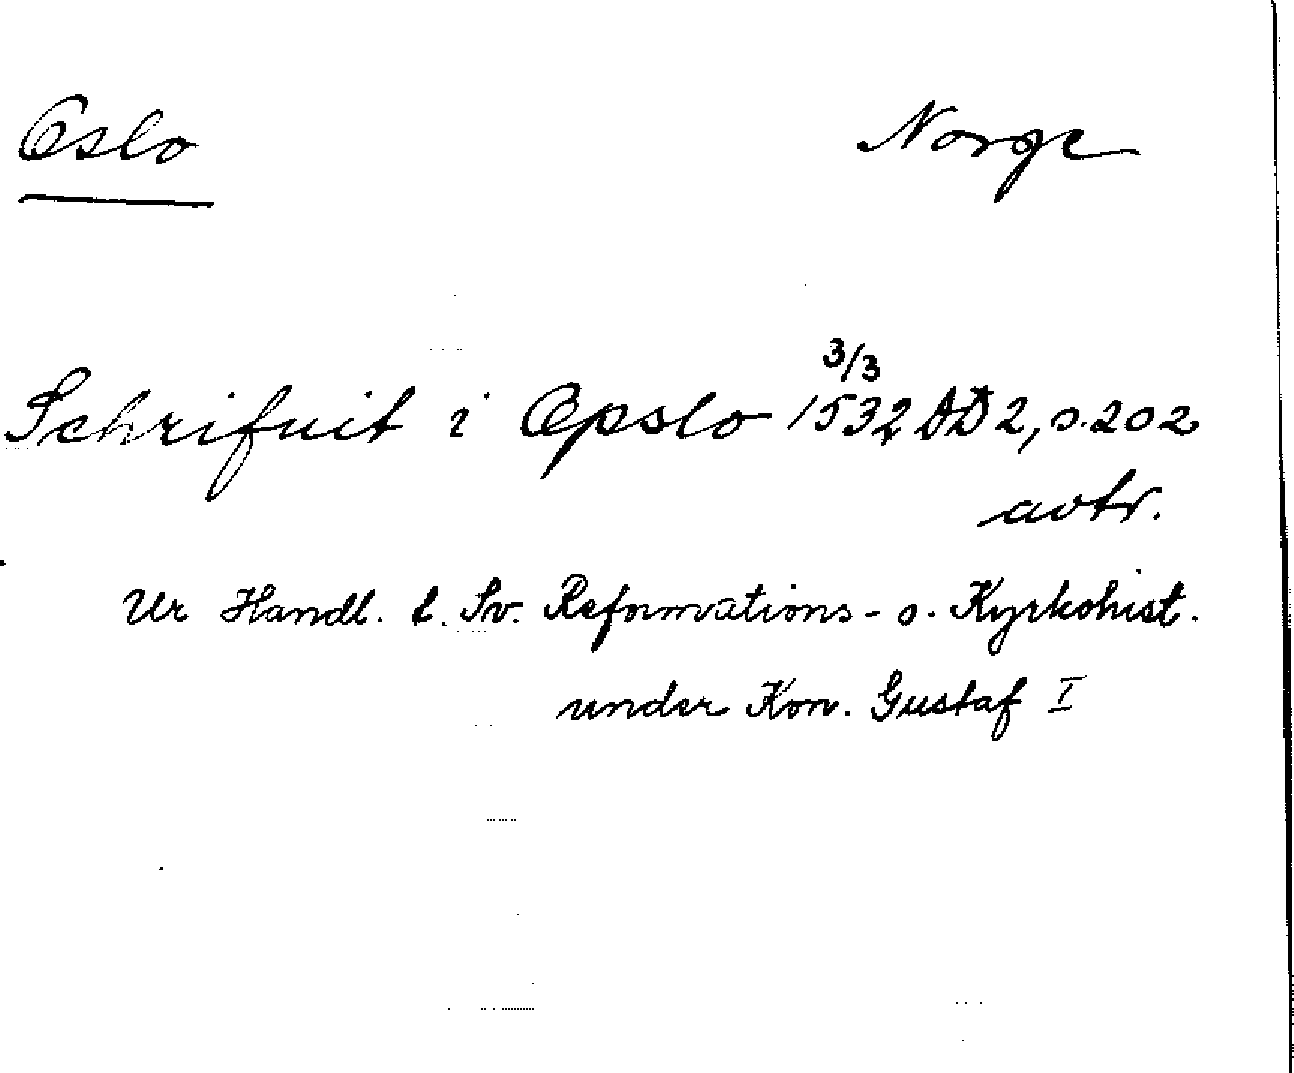 Oslo Norge
Schrifuit i Opslo 3/3 1532 DD 2, s. 202
avtr.
Ur Handl. t. Sv. Reformations- o. Kyrkohist.
under Kon. Gustaf I